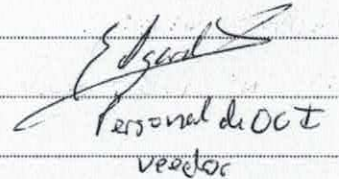 Edgard
Personal de OCI
veedor